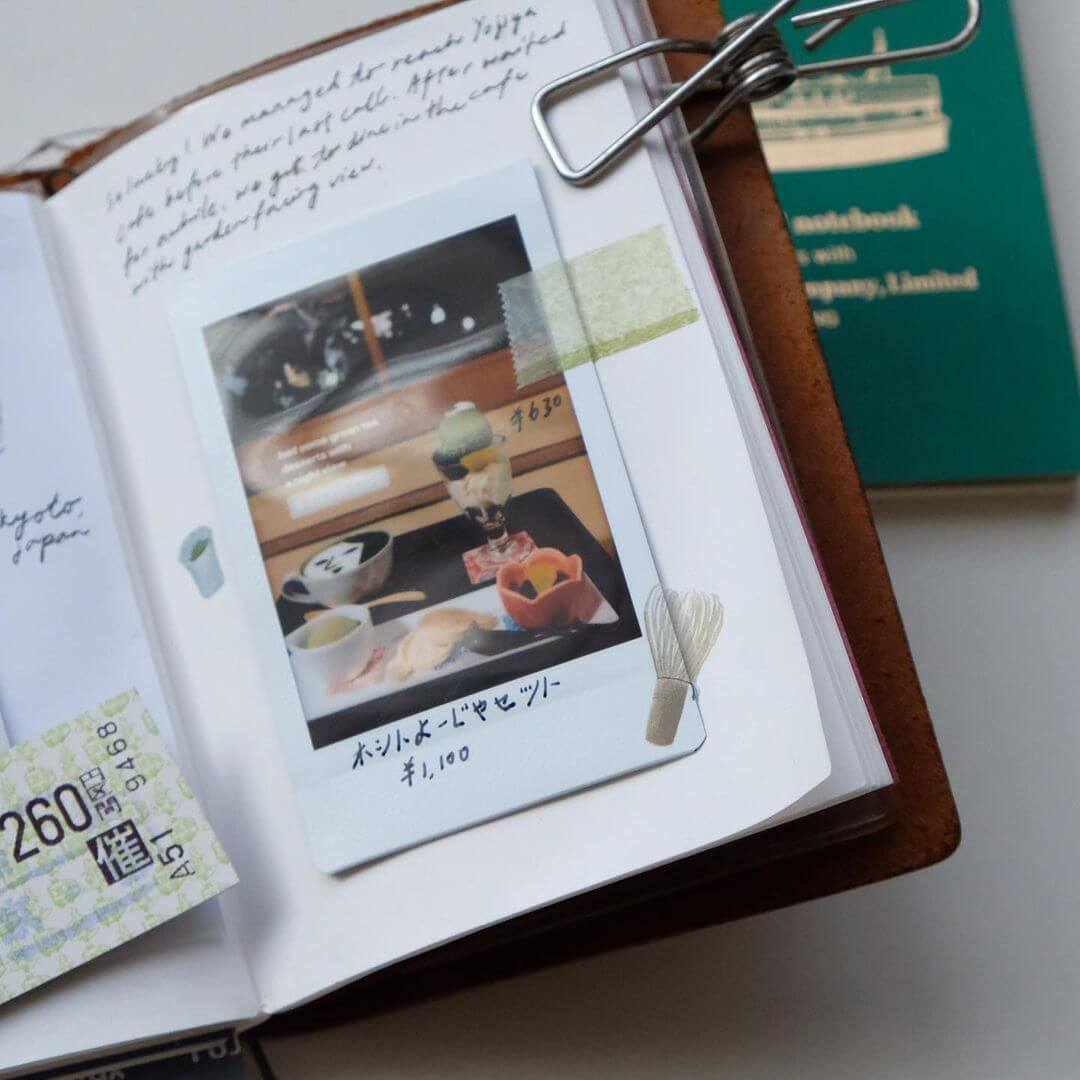 So lucky! We managed to reach Yojiya
cafe before their last call. After waited
for awhile, we get to dine in the cafe
with garden facing view.
had some green tea
desserts with
a night view
¥630
ホットよーじやセット
¥1,100
kyoto,
japan
260
9468
催
A51
notebook
s with
mpany, Limited